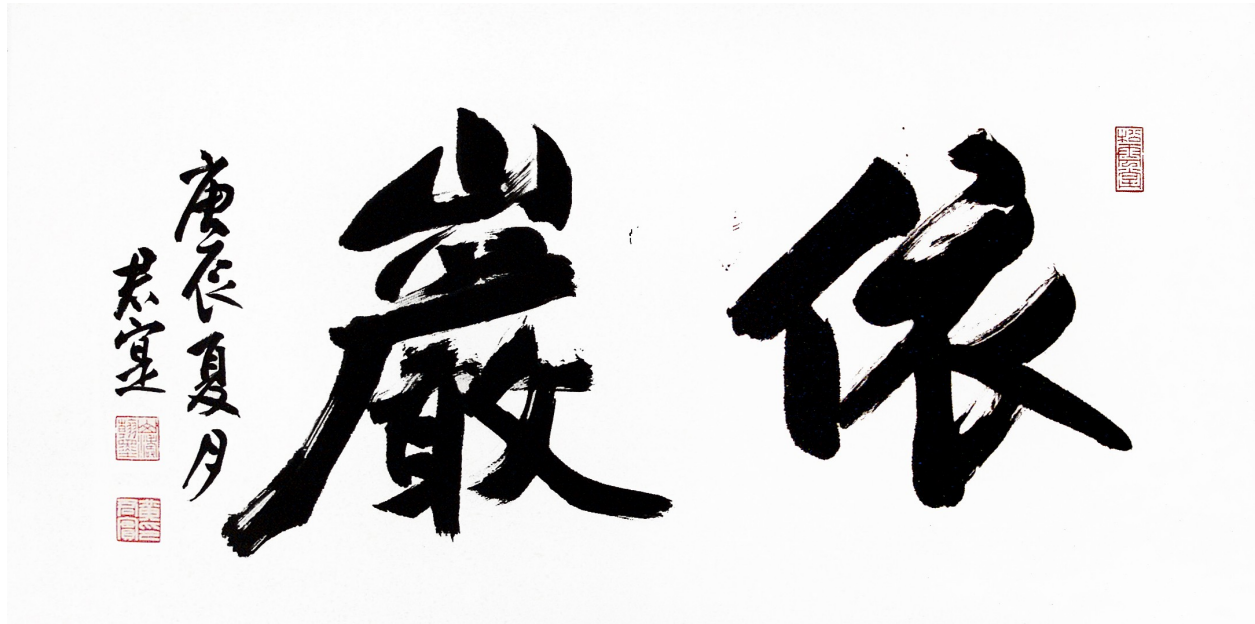 依巖
庚辰夏月
君寔